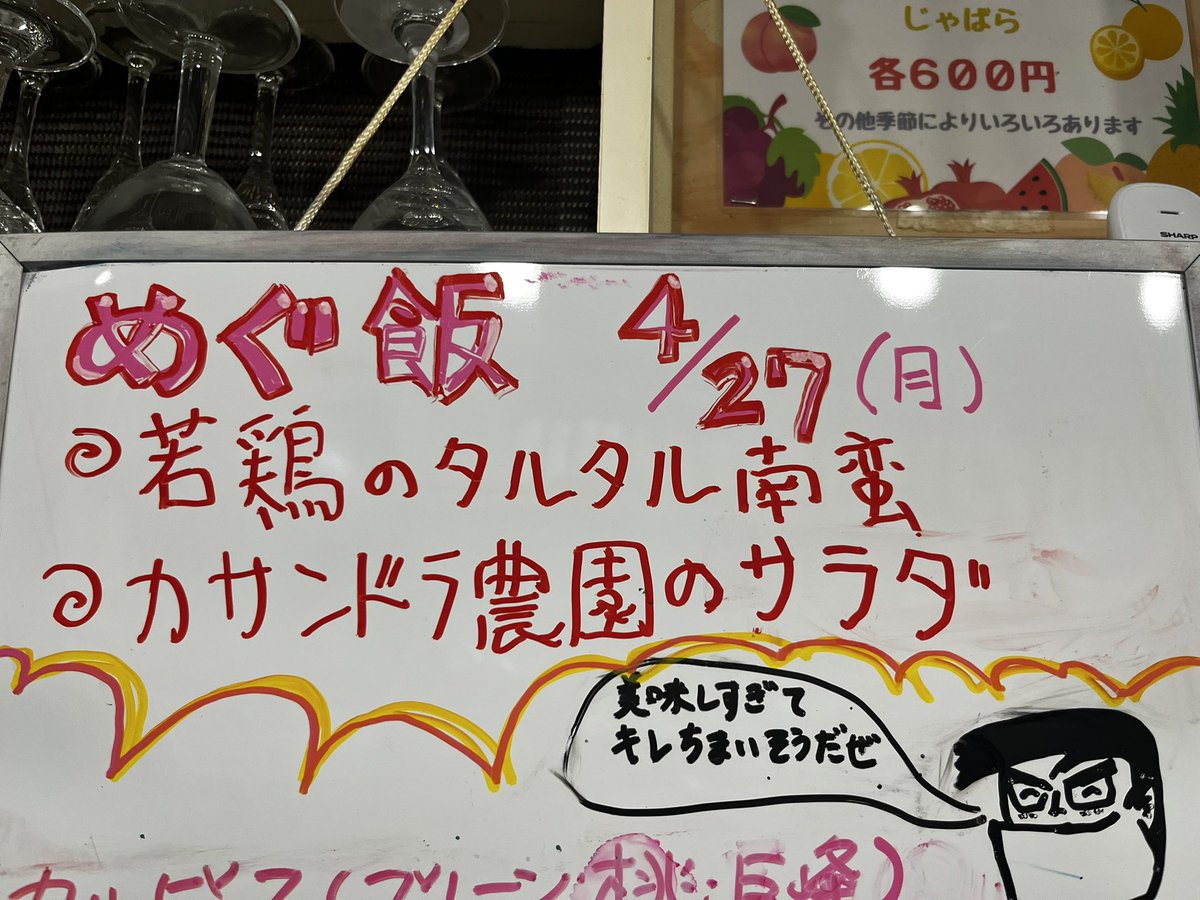 じゃばら
各600円
その他季節によりいろいろあります
SHARP
めぐ飯 4/27(月)
若鶏のタルタル南蛮
カサンドラ農園のサラダ
美味しすぎて
キレちまいそうだぜ
カルピス(プリーン・桃・巨峰)